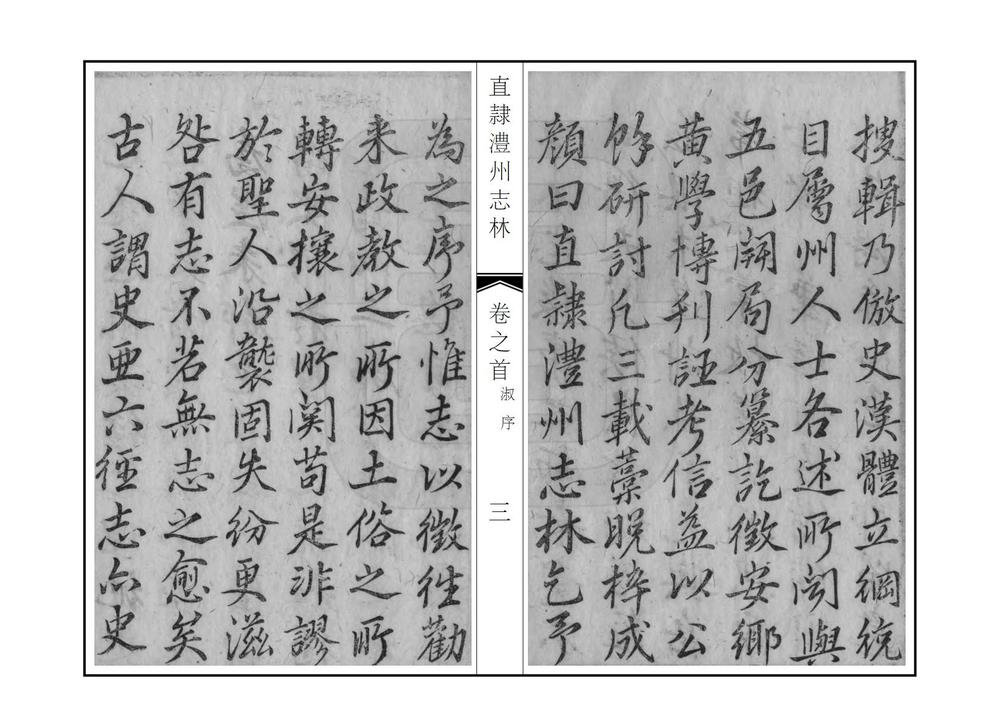 搜輯乃倣史漢體立綱統
目屬州人士各述所闻與
五邑開局分纂訖徴安鄉
黄學博刋誣考信益以公
餘研討凡三載藁晥梓成
顔曰直隷澧州志林乞予
直隷澧州志林
卷之首
淑序
三
為之序予惟志以徴徃勸
来政教之所因土俗之所
轉安攘之所関苟是非謬
於聖人沿襲固失紛更滋
咎有志不若無志之愈矣
古人謂史亜六徑志亦史